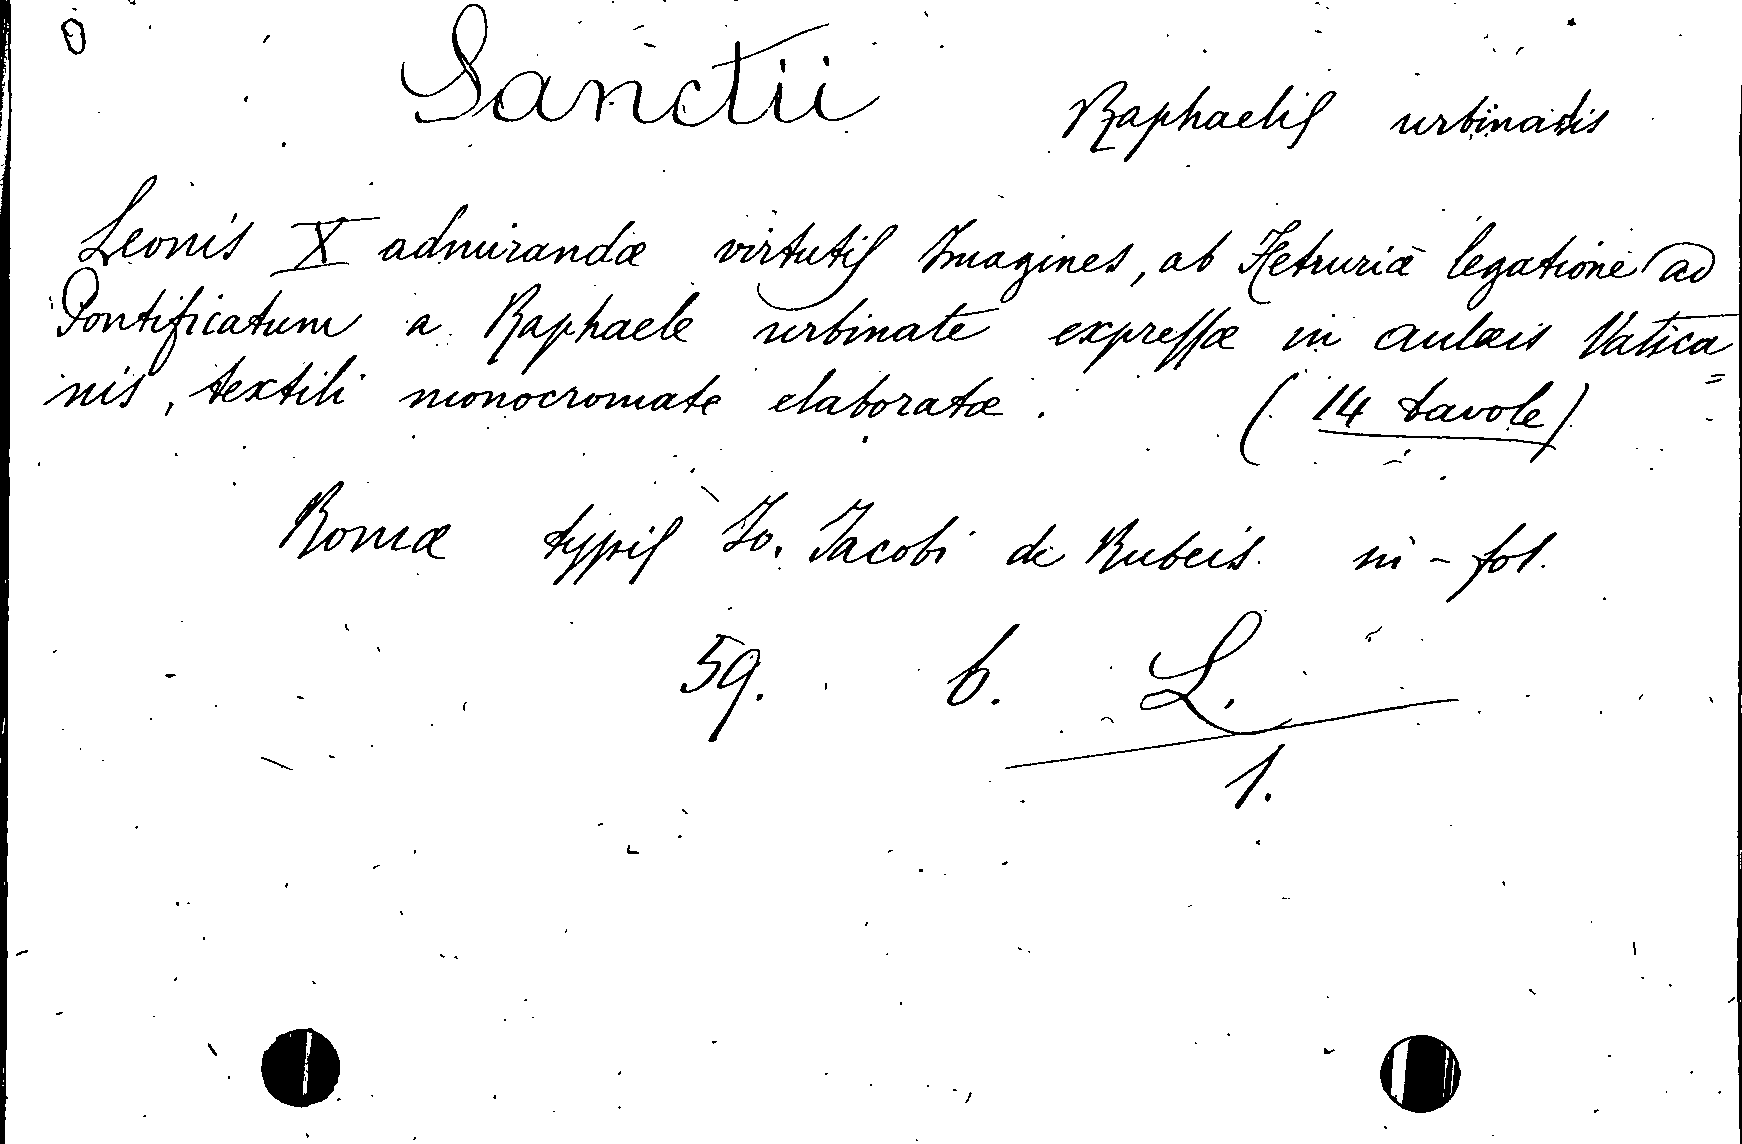 Sanctii Raphaelis urbinatis
Leonis X admirandæ virtutis Imagines, ab Hetruriæ legatione ad
Pontificatum a Raphaele urbinate expressæ in aulæis Vatica=
nis, textili monocromate elaboratæ. (14 tavole)
Romæ typis Io. Jacobi de Rubeis. in-fol.
59. b. L.
1.